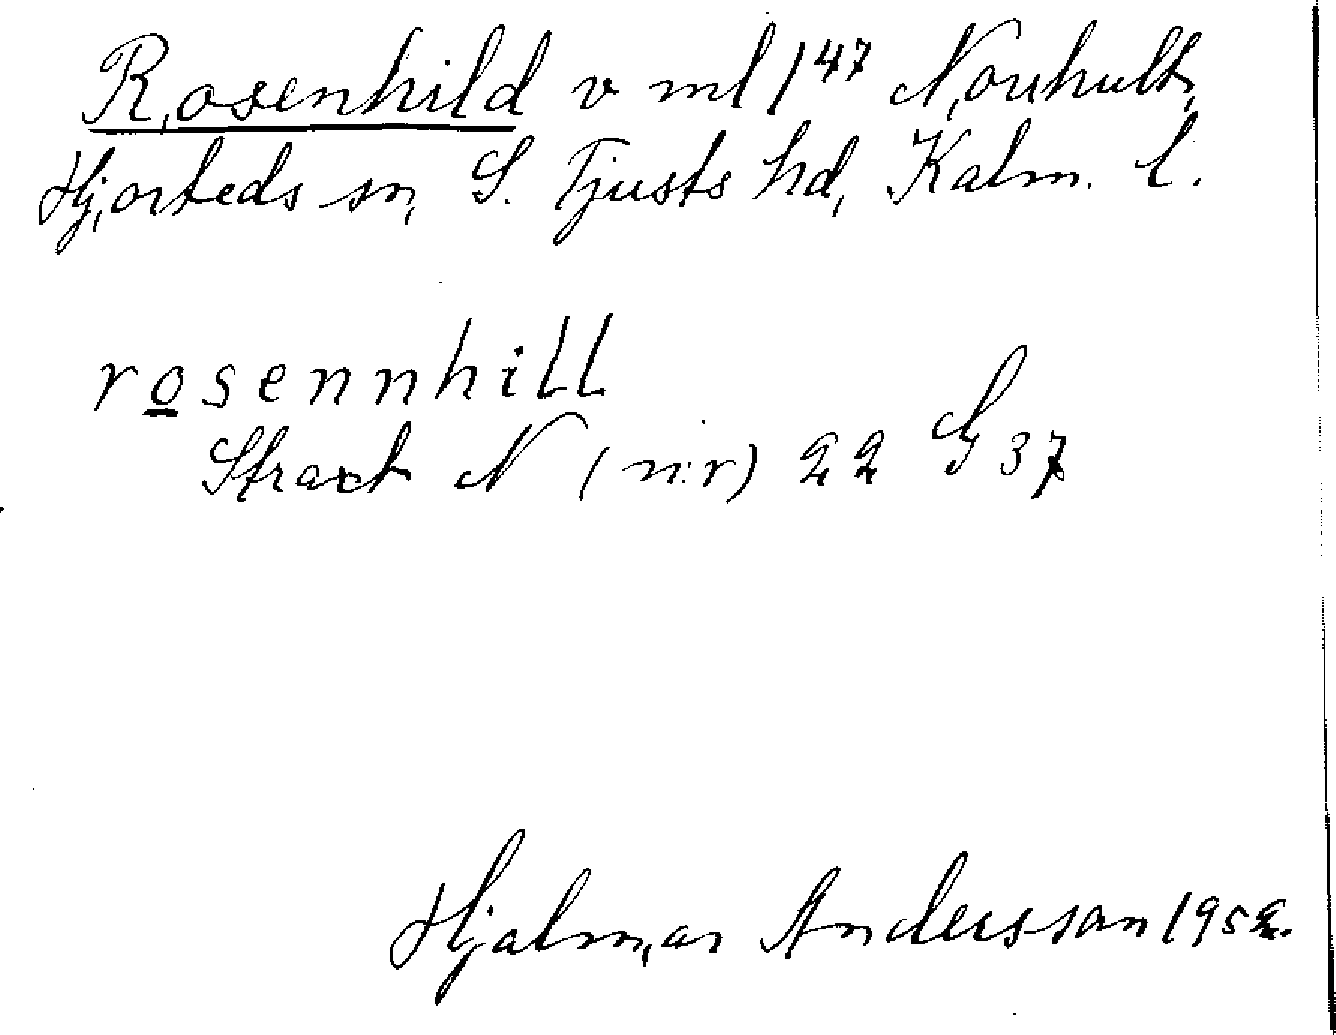 Rosenhild v ml 1⁴⁷ Norrhult,
Hjorteds sn, S. Tjusts hd, Kalm. l.
rosennhill
Straxt N (n:r) 22 G 37
Hjalmar Andersson 1952.